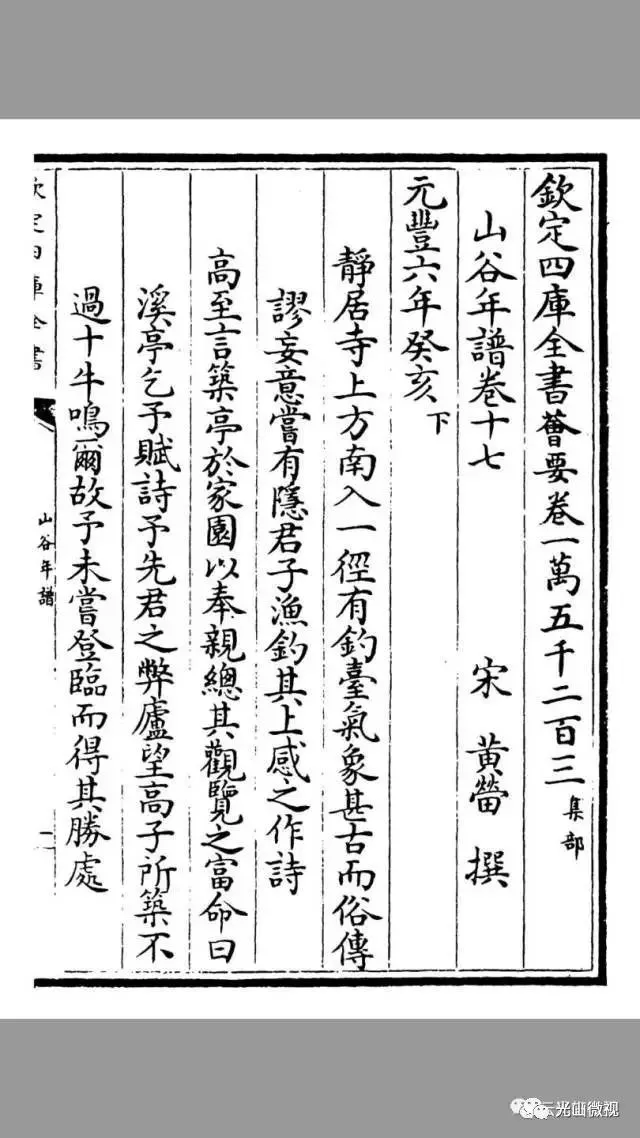 欽定四庫全書薈要卷一萬五千二百三 集部
山谷年譜卷十七
宋 黃㽦 撰
元豐六年癸亥下
靜居寺上方南入一徑有釣臺氣象甚古而俗傳
謬妄意嘗有隱君子漁釣其上感之作詩
高至言築亭於家園以奉親總其觀覽之富命曰
溪亭乞予賦詩予先君之弊廬望高子所築不
過十牛鳴爾故予未嘗登臨而得其勝處
欽定四庫全書
山谷年譜
一
云光山微视